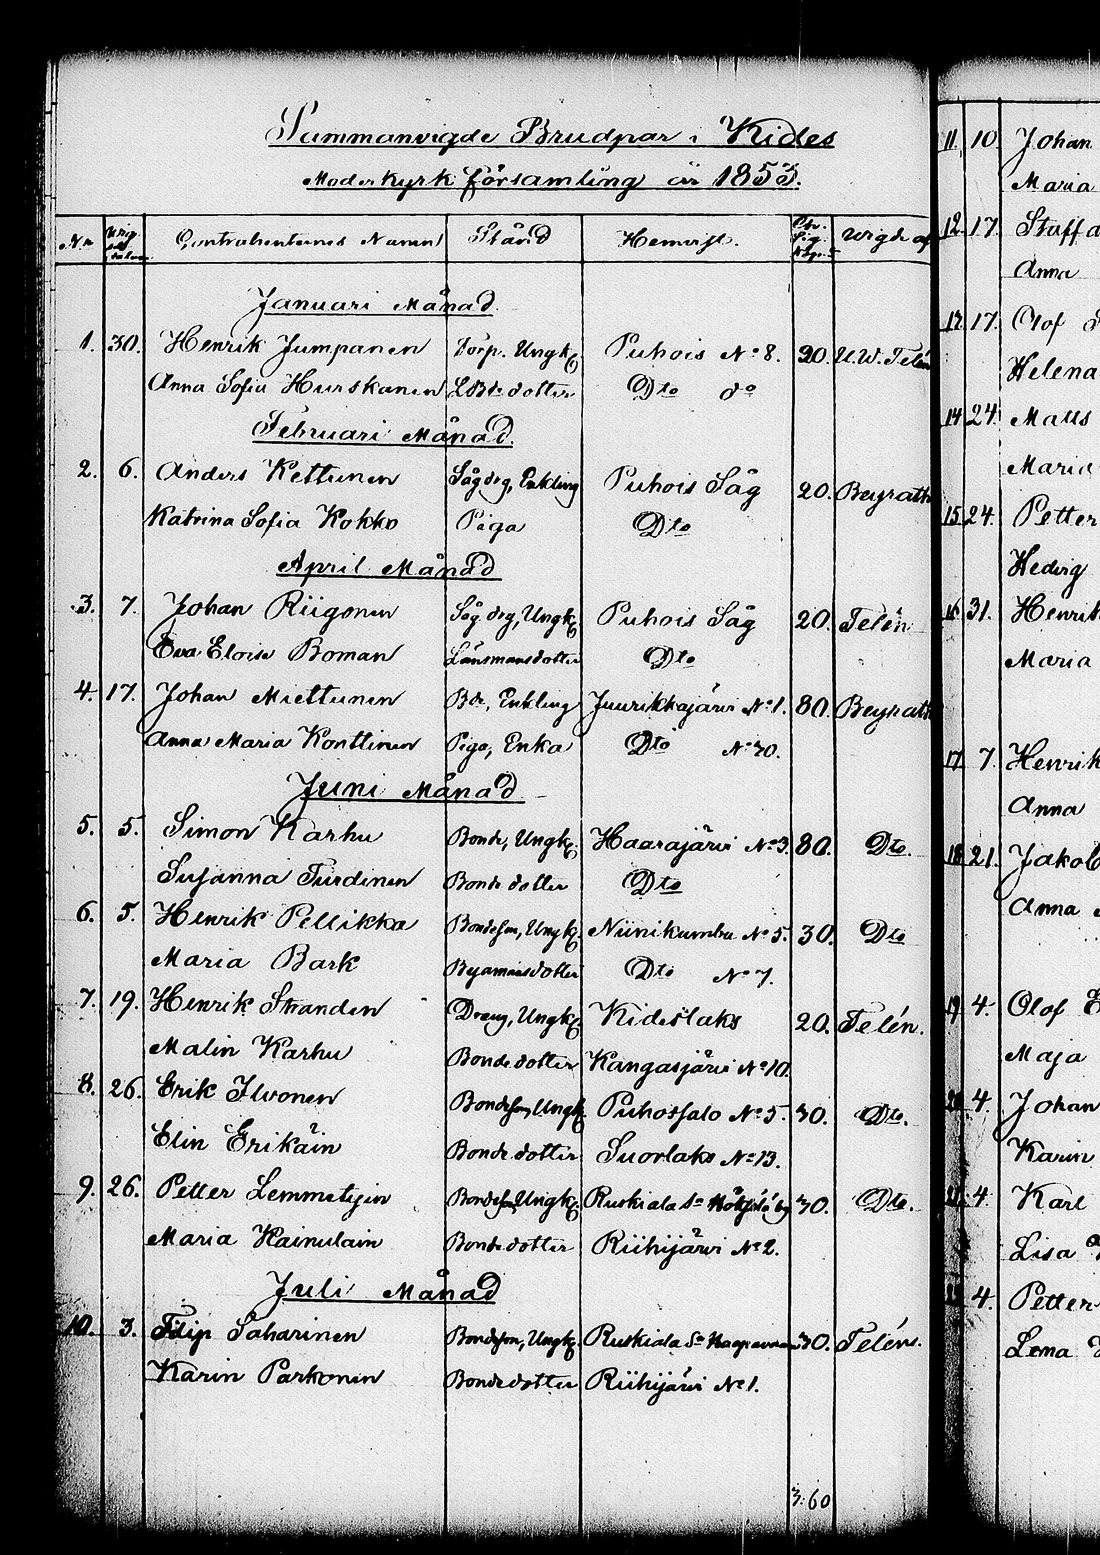 Sammanvigde Brudpar i Kides
Moderkyrk församling år 1853.
No Contrahenternes Namn Stånd Hemvist. Vigde af
Januari Månad
1. 30. Henrik Jumpanen Torp. Ungk. Puhois No 8. 20. U.W. Telén
Anna Sofia Hurskanen dotter Dto do
Februari Månad
2. 6. Anders Kettunen Sågdrg, Enkling Puhois Såg 20. Beyrath
Katrina Sofia Kokko Piga Dto
April Månad
3. 7. Johan Riigonen Såg drg, Ungk. Puhois Såg 20. Telén
Eva Eloise Boman Länsmansdotter Dto
4. 17. Johan Miettunen Bde, Enkling Juurikkajärvi No 1. 80. Beyrath
Anna Maria Konttinen Piga, Enka Dto No 30.
Juni Månad
5. 5. Simon Karhu Bonde, Ungk. Haarajärvi No 3 80. Dto.
Susanna Turdinen Bonde dotter Dto
6. 5. Henrik Pellikka Bondeson, Ungk. Niinikumbu No 5. 30. Dto
Maria Bark Byamansdotter Dto No 7.
7. 19. Henrik Stranden Dreng, Ungk. Kideslaks 20. Telén.
Malin Karhu Bonde dotter Kangasjärvi No 10.
8. 26. Erik Ilvonen Bondeson, Ungk. Puhossalo No 5. 30. Dto.
Elin Erikäin Bonde dotter Suorlaks No 13.
9. 26. Petter Lemmetyin Bondeson, Ungk. Ruskiala Sn 30. Dto.
Maria Kainulain Bonde dotter Riihijärvi No 2.
Juli Månad
10. 3. Filip Saharinen Bondeson, Ungk. Ruskiala Sn 30. Telén.
Karin Parkonen Bondedotter Riihijärvi No 1.
3:60
11. 10. Johan
Maria
12. 17. Staffa
Anna
17. Olof
Helena
14. 24. Matts
Maria
15. 24. Petter
Hedvig
16. 31. Henrik
Maria
17. 7. Henrik
Anna
18. 21. Jakob
Anna
19. 4. Olof
Maja
20. 4. Johan
Karin
4. Karl
Lisa
4. Petter
Lena